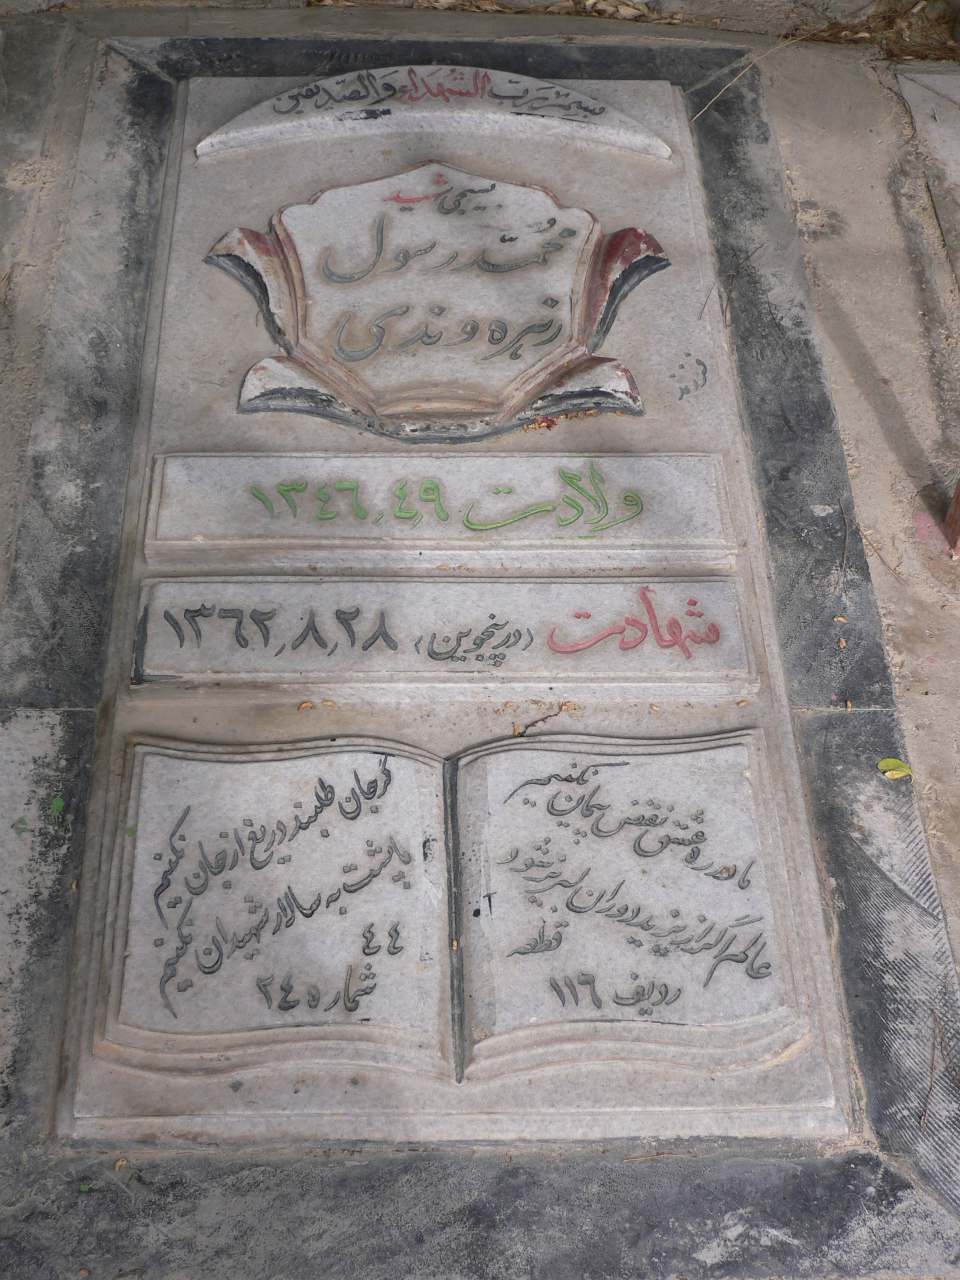 بسم رب الشهداء والصدیقین
بسیجی شهید
محمد رسول
زهره وندی
فرزند
ولادت ۴۹, ۱۳۴۶
شهادت (در پنجوین) ۱۳۶۲,۸,۲۸
ما در ره عشق نقض پیمان نکنیم
گر جان طلبند دریغ از جان نکنیم
عالم اگر از یزید دوران لبریز شود
ما پشت به سالار شهیدان نکنیم
قطعه ۴۴
ردیف ۱۱۶ شماره ۲۴